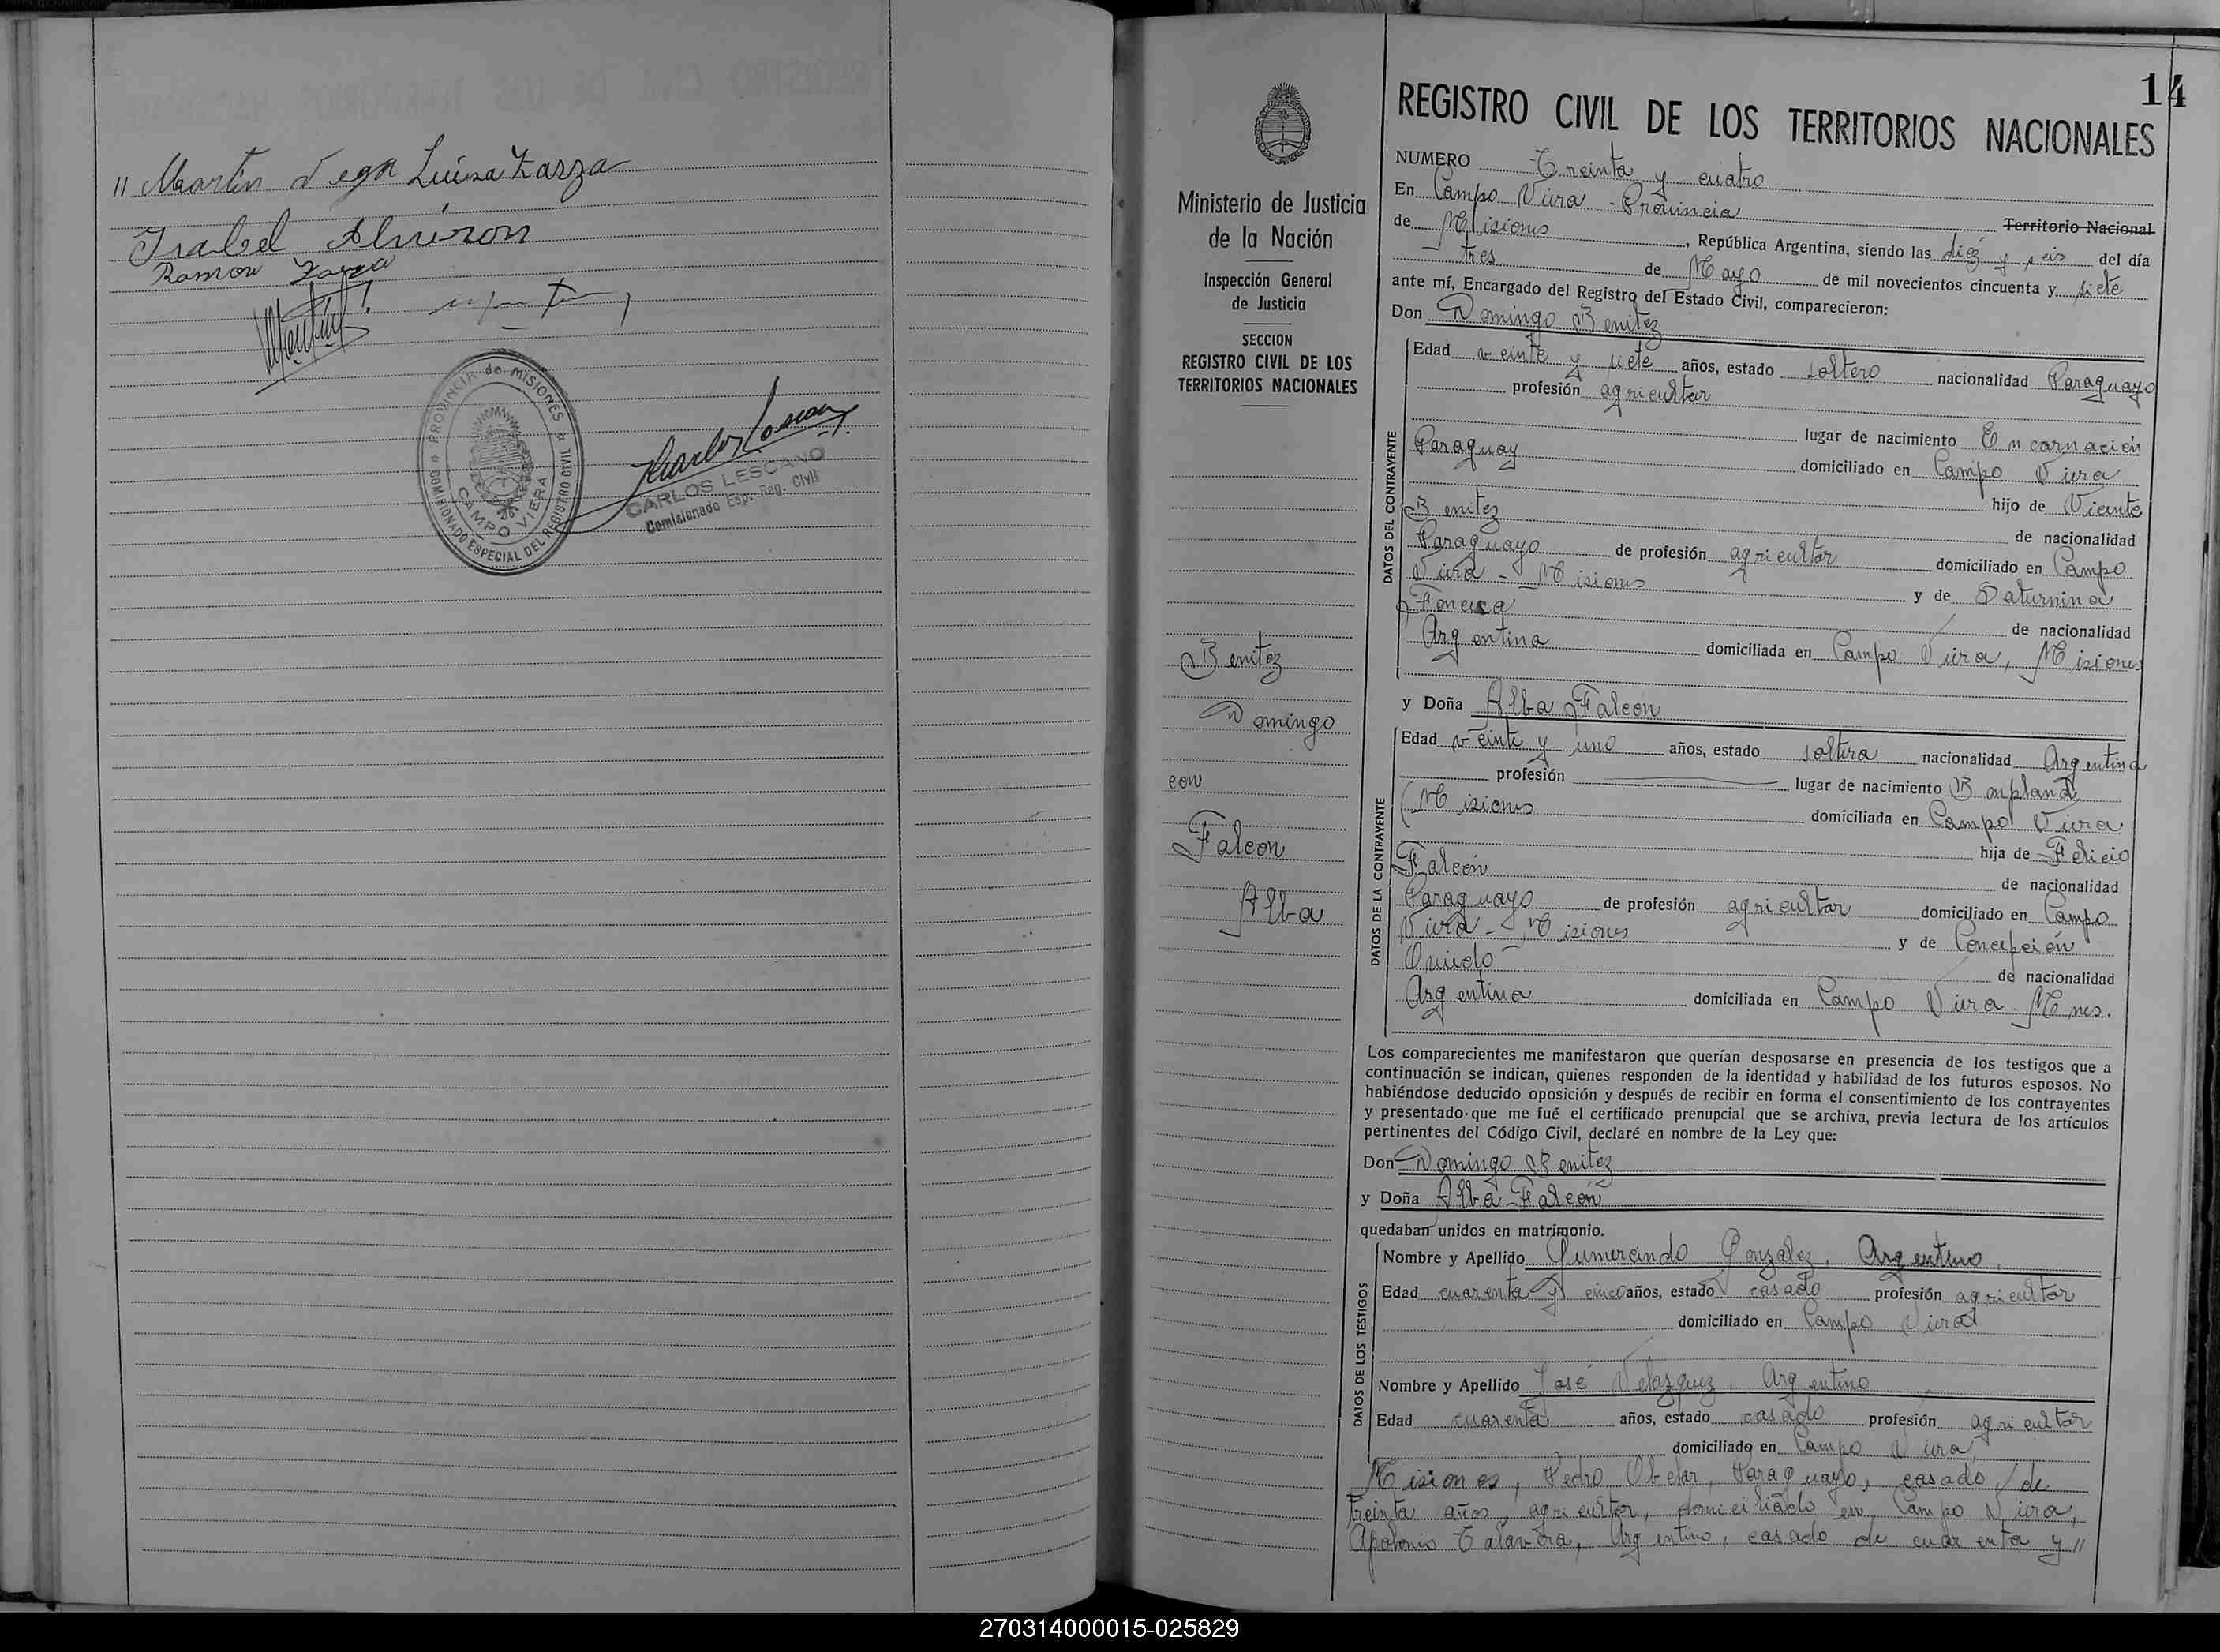 " Martin Vega Luisa Zarza
Isabel Almiron
Ramon Zarza
PROVINCIA de MISIONES
COMISIONADO ESPECIAL DEL REGISTRO CIVIL
CAMPO VIERA
CARLOS LESCANO
Comisionado Esp. Reg. Civil
14
Ministerio de Justicia
de la Nación
Inspección General
de Justicia
SECCION
REGISTRO CIVIL DE LOS
TERRITORIOS NACIONALES
Benitez
Domingo
con
Falcon
Alba
REGISTRO CIVIL DE LOS TERRITORIOS NACIONALES
NUMERO Treinta y cuatro
En Campo Viera - Provincia
de Misiones Territorio Nacional
, República Argentina, siendo las diéz y seis del día
tres de Mayo de mil novecientos cincuenta y siete
ante mí, Encargado del Registro del Estado Civil, comparecieron:
Don Domingo Benitez
DATOS DEL CONTRAYENTE
Edad veinte y siete años, estado soltero nacionalidad Paraguayo
profesión agricultor
lugar de nacimiento Encarnación
Paraguay domiciliado en Campo Viera
hijo de Vicente
Benitez de nacionalidad
Paraguayo de profesión agricultor domiciliado en Campo
Viera - Misiones y de Saturnina
Fonseca de nacionalidad
Argentina domiciliada en Campo Viera, Misiones
y Doña Alba Falcón
DATOS DE LA CONTRAYENTE
Edad veinte y uno años, estado soltera nacionalidad Argentina
profesión lugar de nacimiento Bonpland
(Misiones domiciliada en Campo Viera
hija de Felicio
Falcón de nacionalidad
Paraguayo de profesión agricultor domiciliado en Campo
Viera - Misiones y de Concepción
Oviedo de nacionalidad
Argentina domiciliada en Campo Viera Mnes.
Los comparecientes me manifestaron que querían desposarse en presencia de los testigos que a
continuación se indican, quienes responden de la identidad y habilidad de los futuros esposos. No
habiéndose deducido oposición y después de recibir en forma el consentimiento de los contrayentes
y presentado que me fué el certificado prenupcial que se archiva, previa lectura de los artículos
pertinentes del Código Civil, declaré en nombre de la Ley que:
Don Domingo Benitez
y Doña Alba Falcón
quedaban unidos en matrimonio.
DATOS DE LOS TESTIGOS
Nombre y Apellido Gumercindo Gonzalez, Argentino,
Edad cuarenta y cinco años, estado casado profesión agricultor
domiciliado en Campo Viera
Nombre y Apellido José Velazquez, Argentino
Edad cuarenta años, estado casado profesión agricultor
domiciliado en Campo Viera
Misiones, Pedro Obelar, Paraguayo, casado, de
treinta años, agricultor, domiciliado en Campo Viera,
Apolonio Talavera, Argentino, casado de cuarenta y "
270314000015-025829